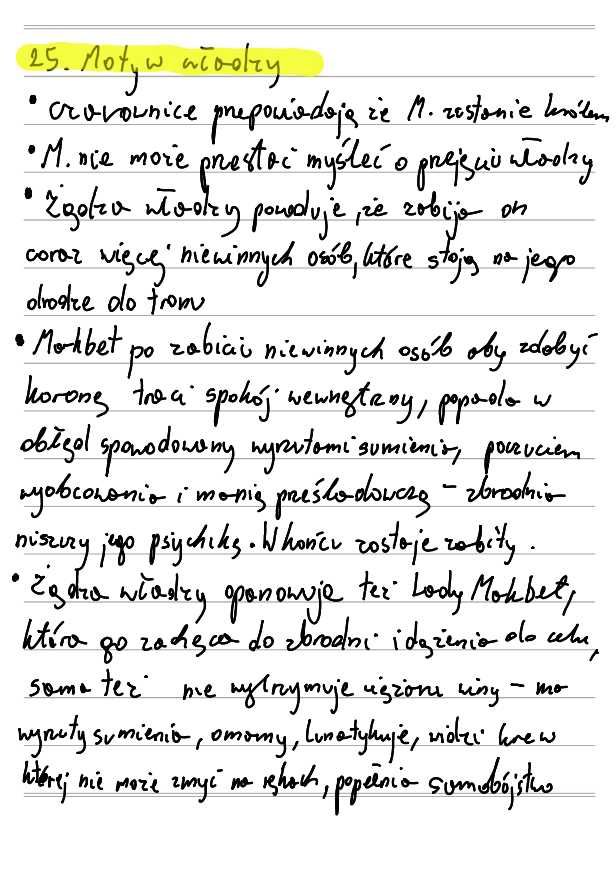 25. Motyw władzy
• czarownice przepowiadają że M. zostanie królem
• M. nie może przestać myśleć o przejęciu władzy
• Żądza władzy powoduje, że zabija on
coraz więcej niewinnych osób, które stoją na jego
drodze do tronu
• Makbet po zabiciu niewinnych osób aby zdobyć
koronę traci spokój wewnętrzny, popada w
obłęd spowodowany wyrzutami sumienia, poczuciem
wyobcowania i manią prześladowczą – zbrodnia
niszczy jego psychikę. W końcu zostaje zabity.
• Żądza władzy opanowuje też Lady Makbet,
która go zachęca do zbrodni i dążenia do celu,
sama też nie wytrzymuje ciężaru winy – ma
wyrzuty sumienia, omamy, lunatykuje, widzi krew
której nie może zmyć na rękach, popełnia samobójstwo